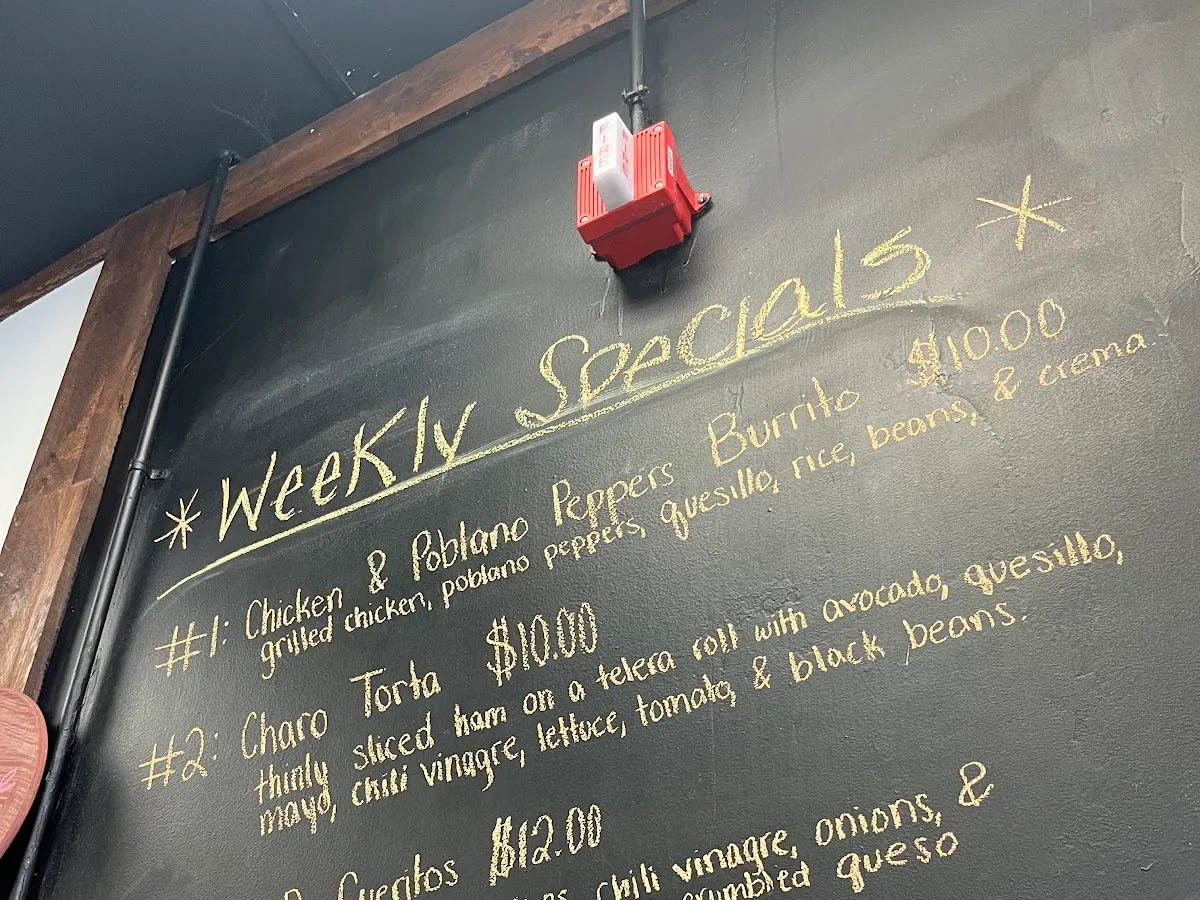 FIRE
* Weekly Specials *
#1: Chicken & Poblano Peppers Burrito $10.00
grilled chicken, poblano peppers, quesillo, rice, beans, & crema.
#2: Charo Torta $10.00
thinly sliced ham on a telera roll with avocado, quesillo,
mayo, chili vinagre, lettuce, tomato, & black beans.
Cueritos $12.00
chili vinagre, onions, &
crumbled queso